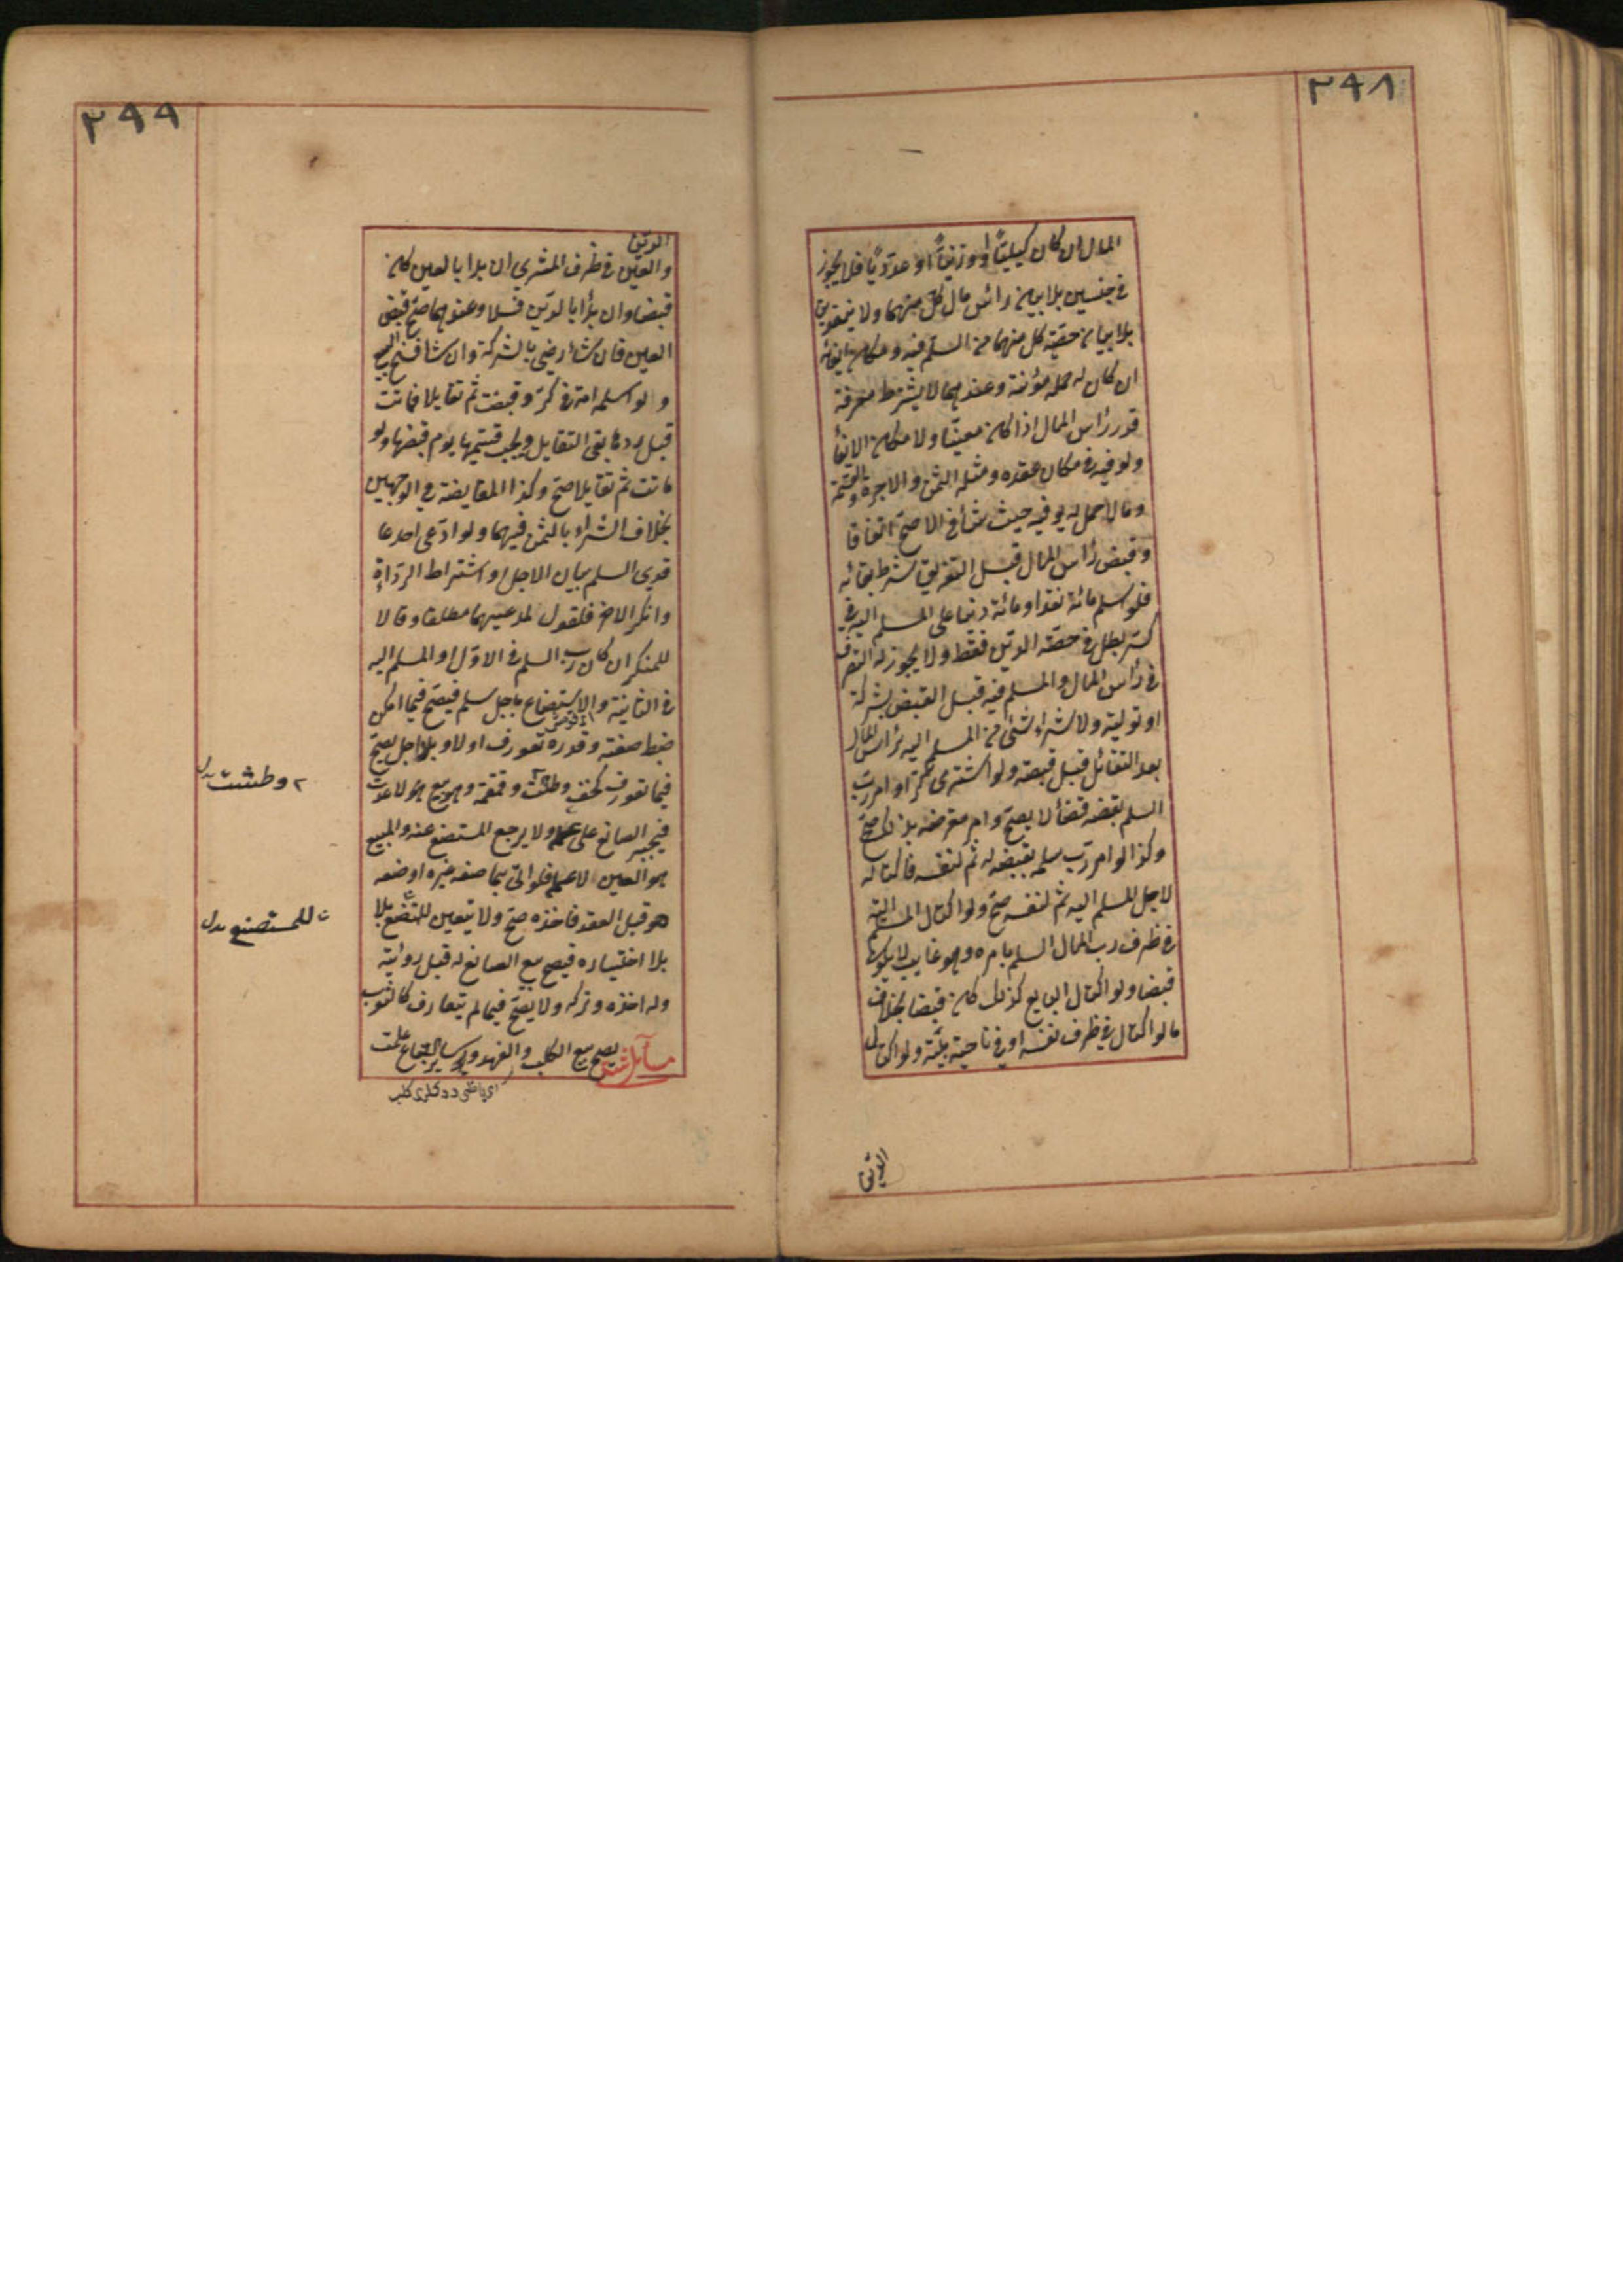 ٢٩٨
المال ان كان كيليًا او وزنيًا او عدديًا فلا يجوز
في جنسين بلا بيان رأس مال كل منهما ولا بنقدين
بلا بيان حصة كل منهما من المسلم فيه ومكان ايفائه
ان كان له حمل ومؤنة وعندهما لا يشترط معرفة
قدر رأس المال اذا كان معينًا ولا مكان الايفأ
ويوفيه في مكان عقده ومثله الثمن والاجرة والقسمة
وما لا حمل له يوفيه حيث شأ في الاصح اتفاقا
وقبض رأس المال قبل التفريق شرط بقائه
فلو اسلم مائة نقدا ومائة دينا على المسلم اليه في
كر بطل في حصة الدين فقط ولا يجوز له التصرف
في رأس المال والمسلم فيه قبل القبض بشركة
او تولية ولا شراء شئ من المسلم اليه برأس المال
بعد التقائل قبل قبضه ولو اشترى كرا وامر رب
السلم بقبضه قضأ لا يصح وامر مقرضه بذلك صح
وكذا لو امر رب سلمه بقبضه له ثم لنفسه فاكتاله
لاجل المسلم اليه ثم لنفسه صح ولو اكتال المسلم اليه
في ظرف رب المال السلم بامره وهو غايب لا يكون
قبضا ولو اكتال البايع كذلك كان قبضا بخلاف
ما لو اكتال في ظرف نفسه او في ناحية بيته ولو اكتال
الدين
٢٩٩
الدين
والعين في ظرف المشتري ان بدا بالعين كان
قبضا وان بدأ بالدين فلا وعندهما صح قبض
العين فان شأ رضي بالشركة وان شا فسخ البيع
ولو اسلم امة في كر وقبضت ثم تقايلا فماتت
قبل ردها بقي التقايل ويجب قيمتها يوم قبضها ولو
ماتت ثم تقايلا صح وكذا المقايضة في الوجهين
بخلاف الشراء بالثمن فيهما ولو ادعى احد عا
قدي السلم بيان الاجل او اشتراط الرداءة
وانكر الاخر فالقول لمدعيهما مطلقا وقالا
للمنكر ان كان رب السلم في الاول او المسلم اليه
في الثانية والاستصناع باجل سلم فيصح فيما امكن
ضبط صفته وقدره تعورف او لا وبلا اجل يصح
فيما تعورف كخف وطشت وقمقمة وهو بيع لا عدة
فيجبر الصانع على عمله ولا يرجع المستصنع عنه والمبيع
هو العين لا عمله فلو اتى بما صنعه غيره او صنعه
هو قبل العقد فاخذه صح ولا يتعين للمستصنع بلا
بلا اختياره فيصح بيع الصانع له قبل رؤيته
وله اخذه وتركه ولا يصح فيما لم يتعارف كالثوب
مسائل شتى يصح بيع الكلب والفهد وسائر السباع علمت
٢ وطشت بدل
للمستصنع بدل